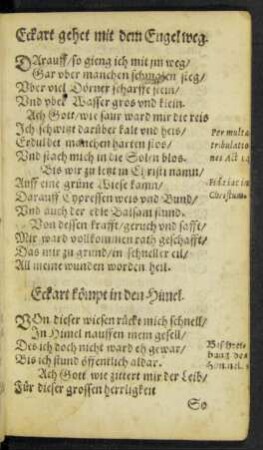 Eckart gehet mit dem Engel weg.
DArauff/ so gieng ich mit jm weg/
Gar vber manchen schmalen steg/
Vber viel Dörner scharffe stein/
Vnd vber Wasser gros vnd klein.
Ach Gott/ wie saur ward mir die reis
Ich schwitzt darüber kalt vnd heis/
Erduldet manchen harten stos/
Vnd stach mich in die Solen blos.
Bis wir zu letzt in Christi namn/
Auff eine grüne Wiese kamn/
Darauff Cypressen weis vnd Bund/
Vnd auch der edle Balsam stund.
Von dessen krafft/ geruch vnd safft/
Mir ward vollkommen rath geschafft/
Das mir zu grund/ in schneller eil/
All meine wunden worden heil.
Per multa
tribulatio
nes Act 14
Christum.
Eckart kömpt in den Himel.
VOn dieser wiesen rückt mich schnell/
In Himel nauffen mein gesell/
Des ich doch nicht ward eh gewar/
Bis ich stund öffentlich aldar.
Ach Gott wie zittert mir der Leib/
Für dieser grossen herrligkeit
So